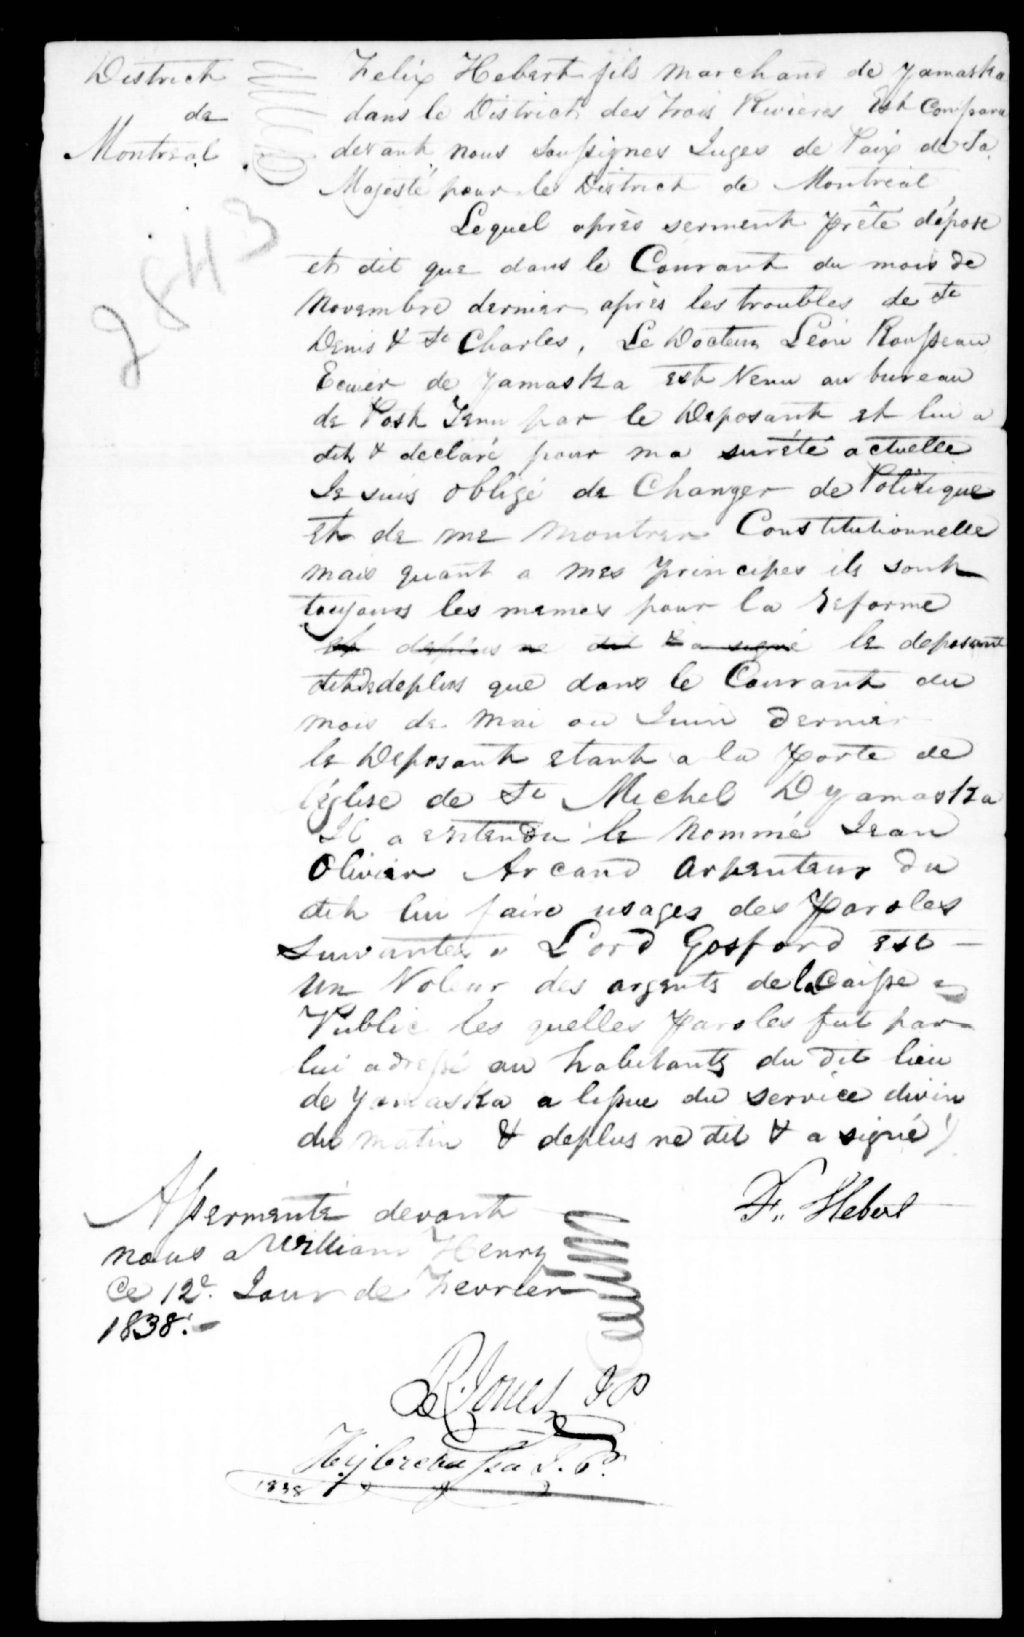 District
de
Montréal
2843
Felix Hebert fils marchand de yamaska
dans le District des trois Rivieres est Compara
devant nous Soussignés Juges de Paix de Sa
Majesté pour le District de Montréal
Lequel après serment prêté dépose
et dit que dans le Courant du mois de
Novembre dernier après les troubles de St
Denis & St Charles, Le Docteur Léon Rousseau
Ecuier de yamaska est Venu au bureau
de Post Tenu par le Deposant et lui a
dit & declaré pour ma sureté actuelle
Je suis obligé de Changer de Politique
et de me montrer Constitutionnelle
mais quant a mes principes ils sont
toujours les memes pour la reforme
et deplus ne dit & a signé le deposant
dit de deplus que dans le Courant du
mois de Mai ou Juin dernier
le Deposant etant a la porte de
l'église de St Michel D yamaska
Il a entendu le Nommé Jean
Olivier Arcand Arpenteur du
dit lui faire usages des paroles
Suivantes " Lord Gosford est
un Voleur des argents de la Caisse
Public les quelles paroles fut par
lui adressé au habitants du dit lieu
de yamaska a lissue du service divin
du matin & deplus ne dit & a signé
F. Hebert
Assermenté devant
nous a William Henry
Ce 12e. Jour de Fevrier
1838.
R. Jones JP
J. P.
1838